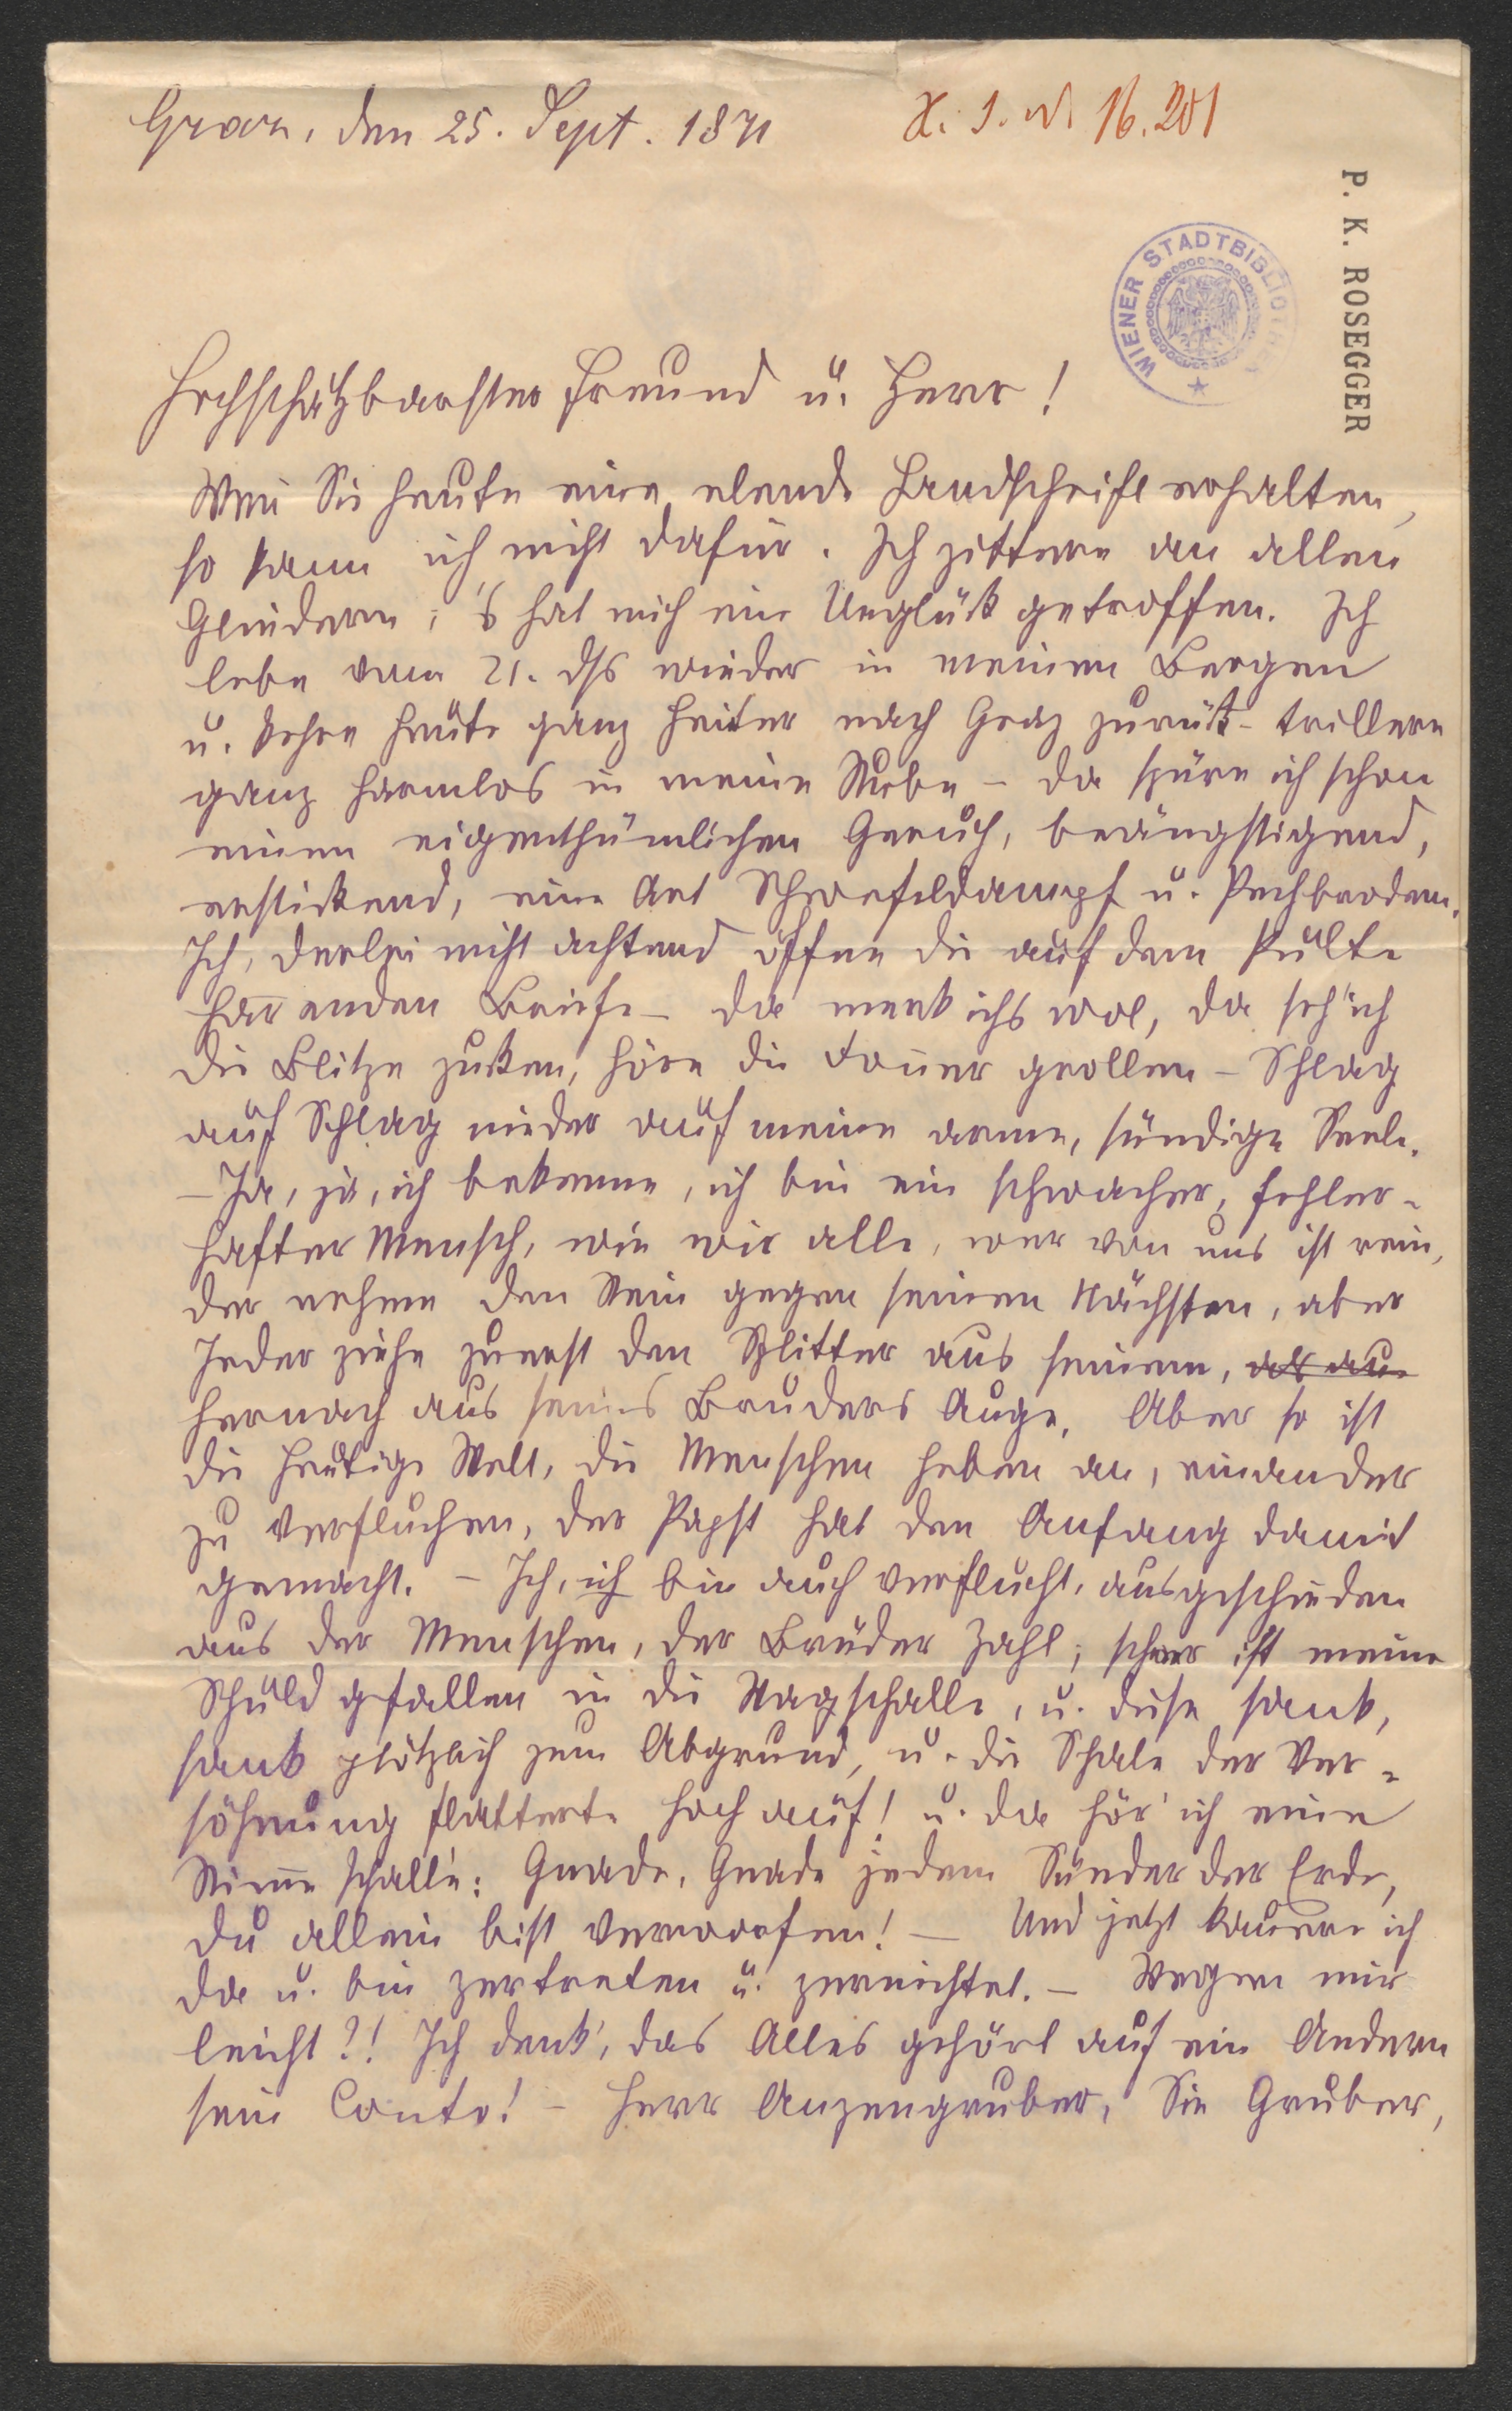 Graz, den 25. Sept. 1871
H. I. N. 16.201
P. K. ROSEGGER
WIENER STADTBIBLIOTHEK
Hochschätzbarster Freund u. Herr!
Weñ Sie heute eine elende Handschrift erhalten,
so kann ich nicht dafür. Ich zittere an allen
Gliedern; 's hat mich ein Unglück getroffen. Ich
lebe vom 21. ds wieder in meinen Bergen
u. kehre heute ganz heiter nach Graz zurück - trillere
ganz harmlos in meine Stube - da spüre ich schon
einen eigenthümlichen Geruch, beängstigend,
erstickend, eine Art Schwefeldampf u. Pechbrodem.
Ich, derlei nicht achtend öffne die auf dem Pulte
harrenden Briefe - da merk ichs wol, da seh' ich
die Blitze zucken, höre die Doñer grollen - Schlag
auf Schlag nieder auf meine arme, sündige Seele.
- Ja, ja, ich bekenne, ich bin ein schwacher, fehler-
hafter Mensch, wie wir alle, wer von uns ist rein,
der nehme den Stein gegen seinen Nächsten, aber
Jeder ziehe zuerst den Splitter aus seinem, als aus
hernach aus seines Bruders Auge. Aber so ist
die heutige Welt, die Menschen heben an, einander
zu verfluchen, der Papst hat den Anfang damit
gemacht. - Ich, ich bin auch verflucht, ausgeschieden
aus der Menschen, der Brüder Zahl; schwer ist meine
Schuld gefallen in die Wagschalle, u. diese sank,
sank plötzlich zum Abgrund, u. die Schale der Ver-
söhnung flatterte hoch auf! u. da hör' ich eine
Stim̄e schalle'n: Gnade, Gnade jedem Sünder der Erde,
du allein bist verworfen! - Und jetzt kauere ich
da u. bin zertreten u. zernichtet. - Wegen mir
leicht?! Ich denk', das Alles gehört auf ein Andern
sein Conto! - Herr Anzengruber, Sie Gruber,